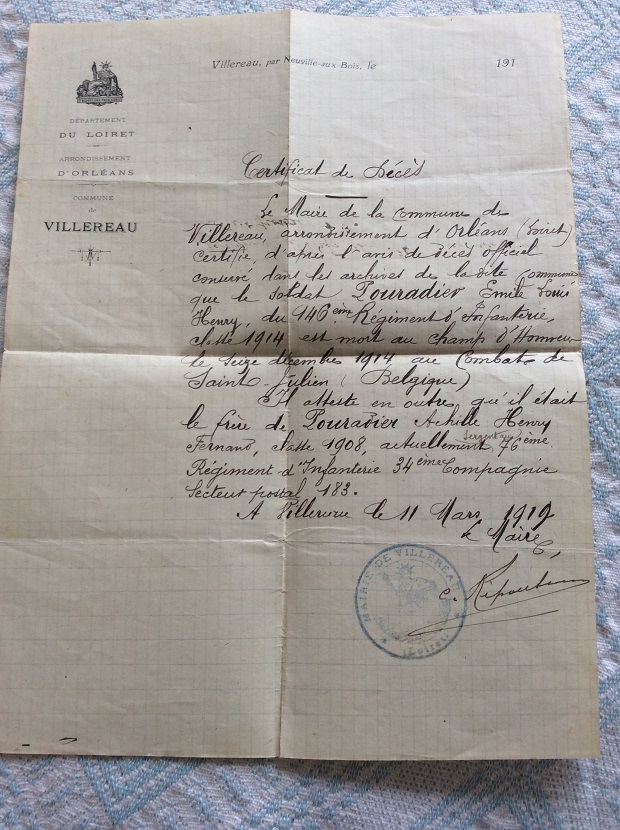 Villereau, par Neuville-aux-Bois, le 191
DÉPARTEMENT
DU LOIRET
ARRONDISSEMENT
D'ORLÉANS
COMMUNE
de
VILLEREAU
Certificat de Décès
Le Maire de la commune de
Villereau, arrondissement d'Orléans (Loiret)
certifie, d'après l'avis de décès officiel
conservé dans les archives de la dite commune
que le soldat Pouradier Emile Louis
Henry, du 146ème Régiment d'Infanterie,
classe 1914 est mort au champ d'Honneur
le seize décembre 1914 au Combat de
Saint-Julien (Belgique)
Il atteste en outre, qu'il était
le frère de Pouradier Achille Henry
Fernand, classe 1908, actuellement Sergent au 76ème
Régiment d'Infanterie 34ème Compagnie
Secteur postal 183.
A Villereau le 11 Mars 1919
Le Maire,
MAIRIE DE VILLEREAU
(Loiret)
C.